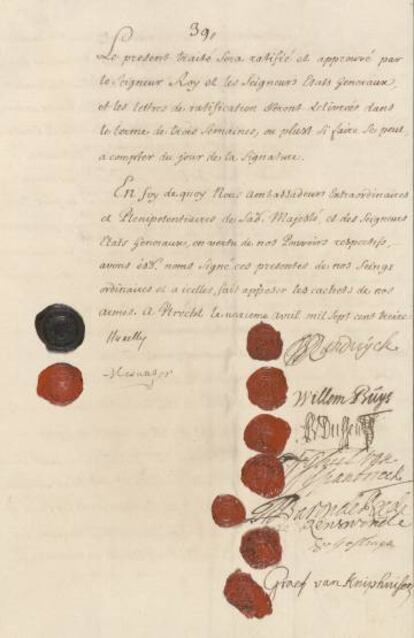 39.
Le present traité sera ratifié et approuvé par
le Seigneur Roy et les Seigneurs Etats Generaux,
et les lettres de ratification seront delivrées dans
le terme de trois semaines, ou plustost si faire se peut,
a compter du jour de la signature.
En foy de quoy Nous Ambassadeurs Extraordinaires
et Plenipotentiaires de Sad. Majesté et des Seigneurs
Etats Generaux, en vertu de nos Pouvoirs respectifs,
avons esd. noms signé ces presentes de nos Seings
ordinaires et a icelles fait apposer les cachets de nos
armes. A Utrecht le onzieme avril mil sept cent treize
Huxelles
Mesnager
Randwijck
Willem Buys
BvDussen
Renswoude
Graef van Kniphuisen